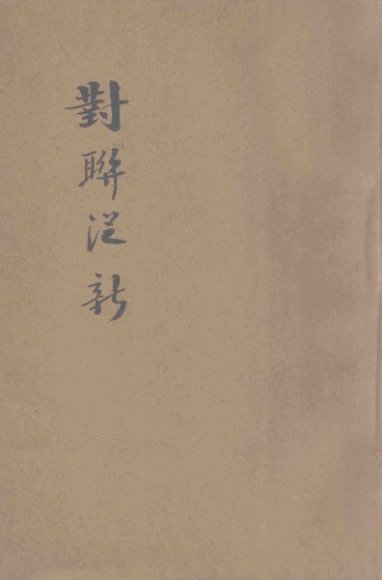 對聯從新